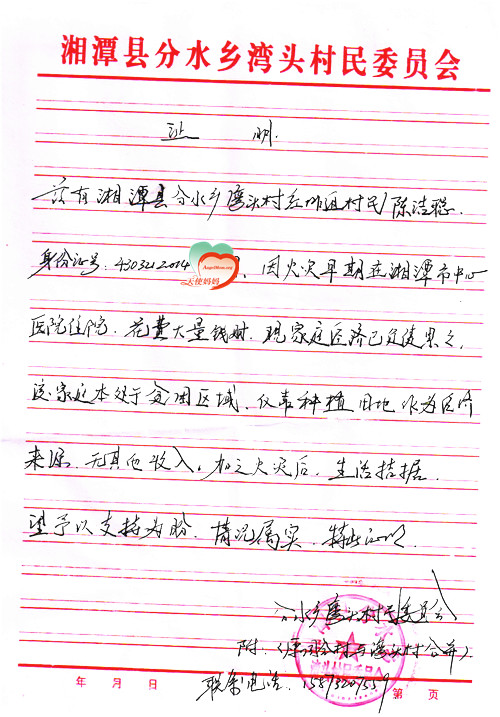 湘潭县分水乡湾头村民委员会
证 明.
兹有湘潭县分水乡湾头村 组村民陈洁聪.
身份证号:4303212014 因火灾早期在湘潭市中心
Angelmom.org
天使妈妈
医院住院.花费大量钱财.现家庭经济已负债累之,
该家庭本处于贫困区域.仅靠种植田地作为经济
来源.无其他收入.加之火灾后.生活拮据.
望予以支持为盼.情况属实.特此证明.
分水乡湾头村民委员会
附.( 村与湾头村合并)
联系电话.15873207559
年 月 日
第 页